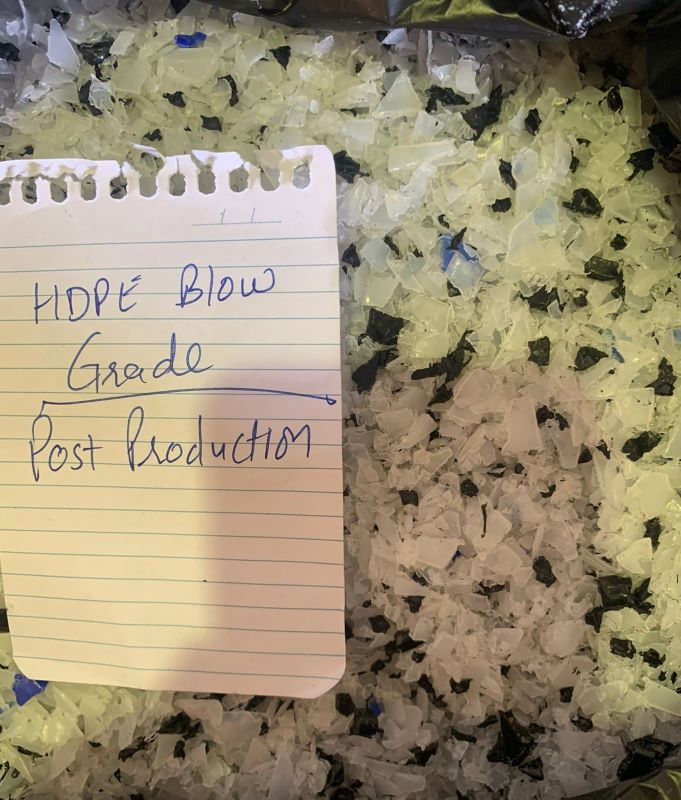 HDPE Blow
Grade
Post Production